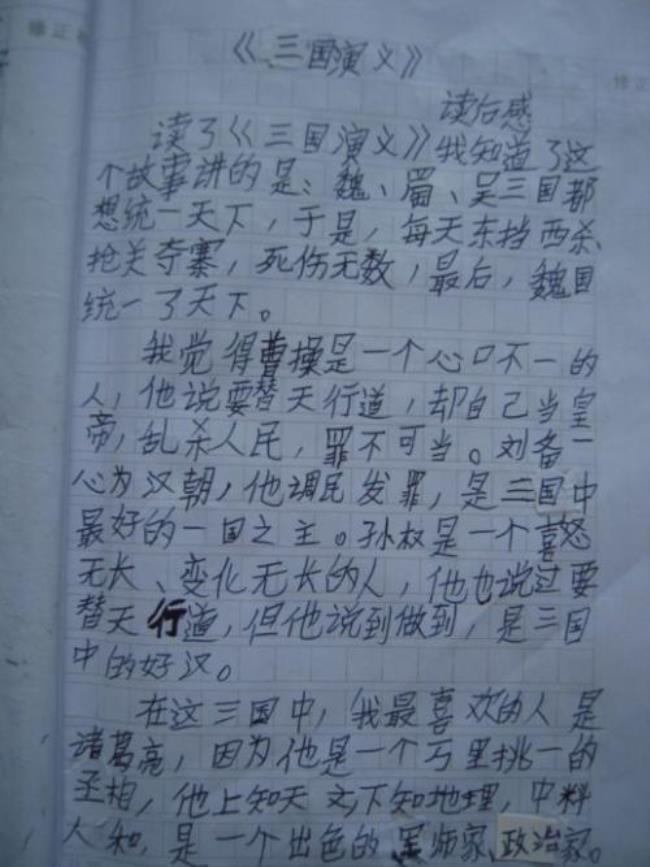 修正
修正
《三国演义》
读后感
读了《三国演义》我知道了这
个故事讲的是：魏、蜀、吴三国都
想统一天下，于是，每天东挡西杀、
抢关夺寨，死伤无数，最后，魏国
统一了天下。
我觉得曹操是一个心口不一的
人，他说要替天行道，却自己当皇
帝，乱杀人民，罪不可当。刘备一
心为汉朝，他调民发罪，是三国中
最好的一国之主。孙权是一个喜怒
无长、变化无长的人，他也说过要
替天行道，但他说到做到，是三国
中的好汉。
在这三国中，我最喜欢的人是
诸葛亮，因为他是一个万里挑一的
丞相，他上知天文下知地理，中料
人和，是一个出色的军师家、政治家。